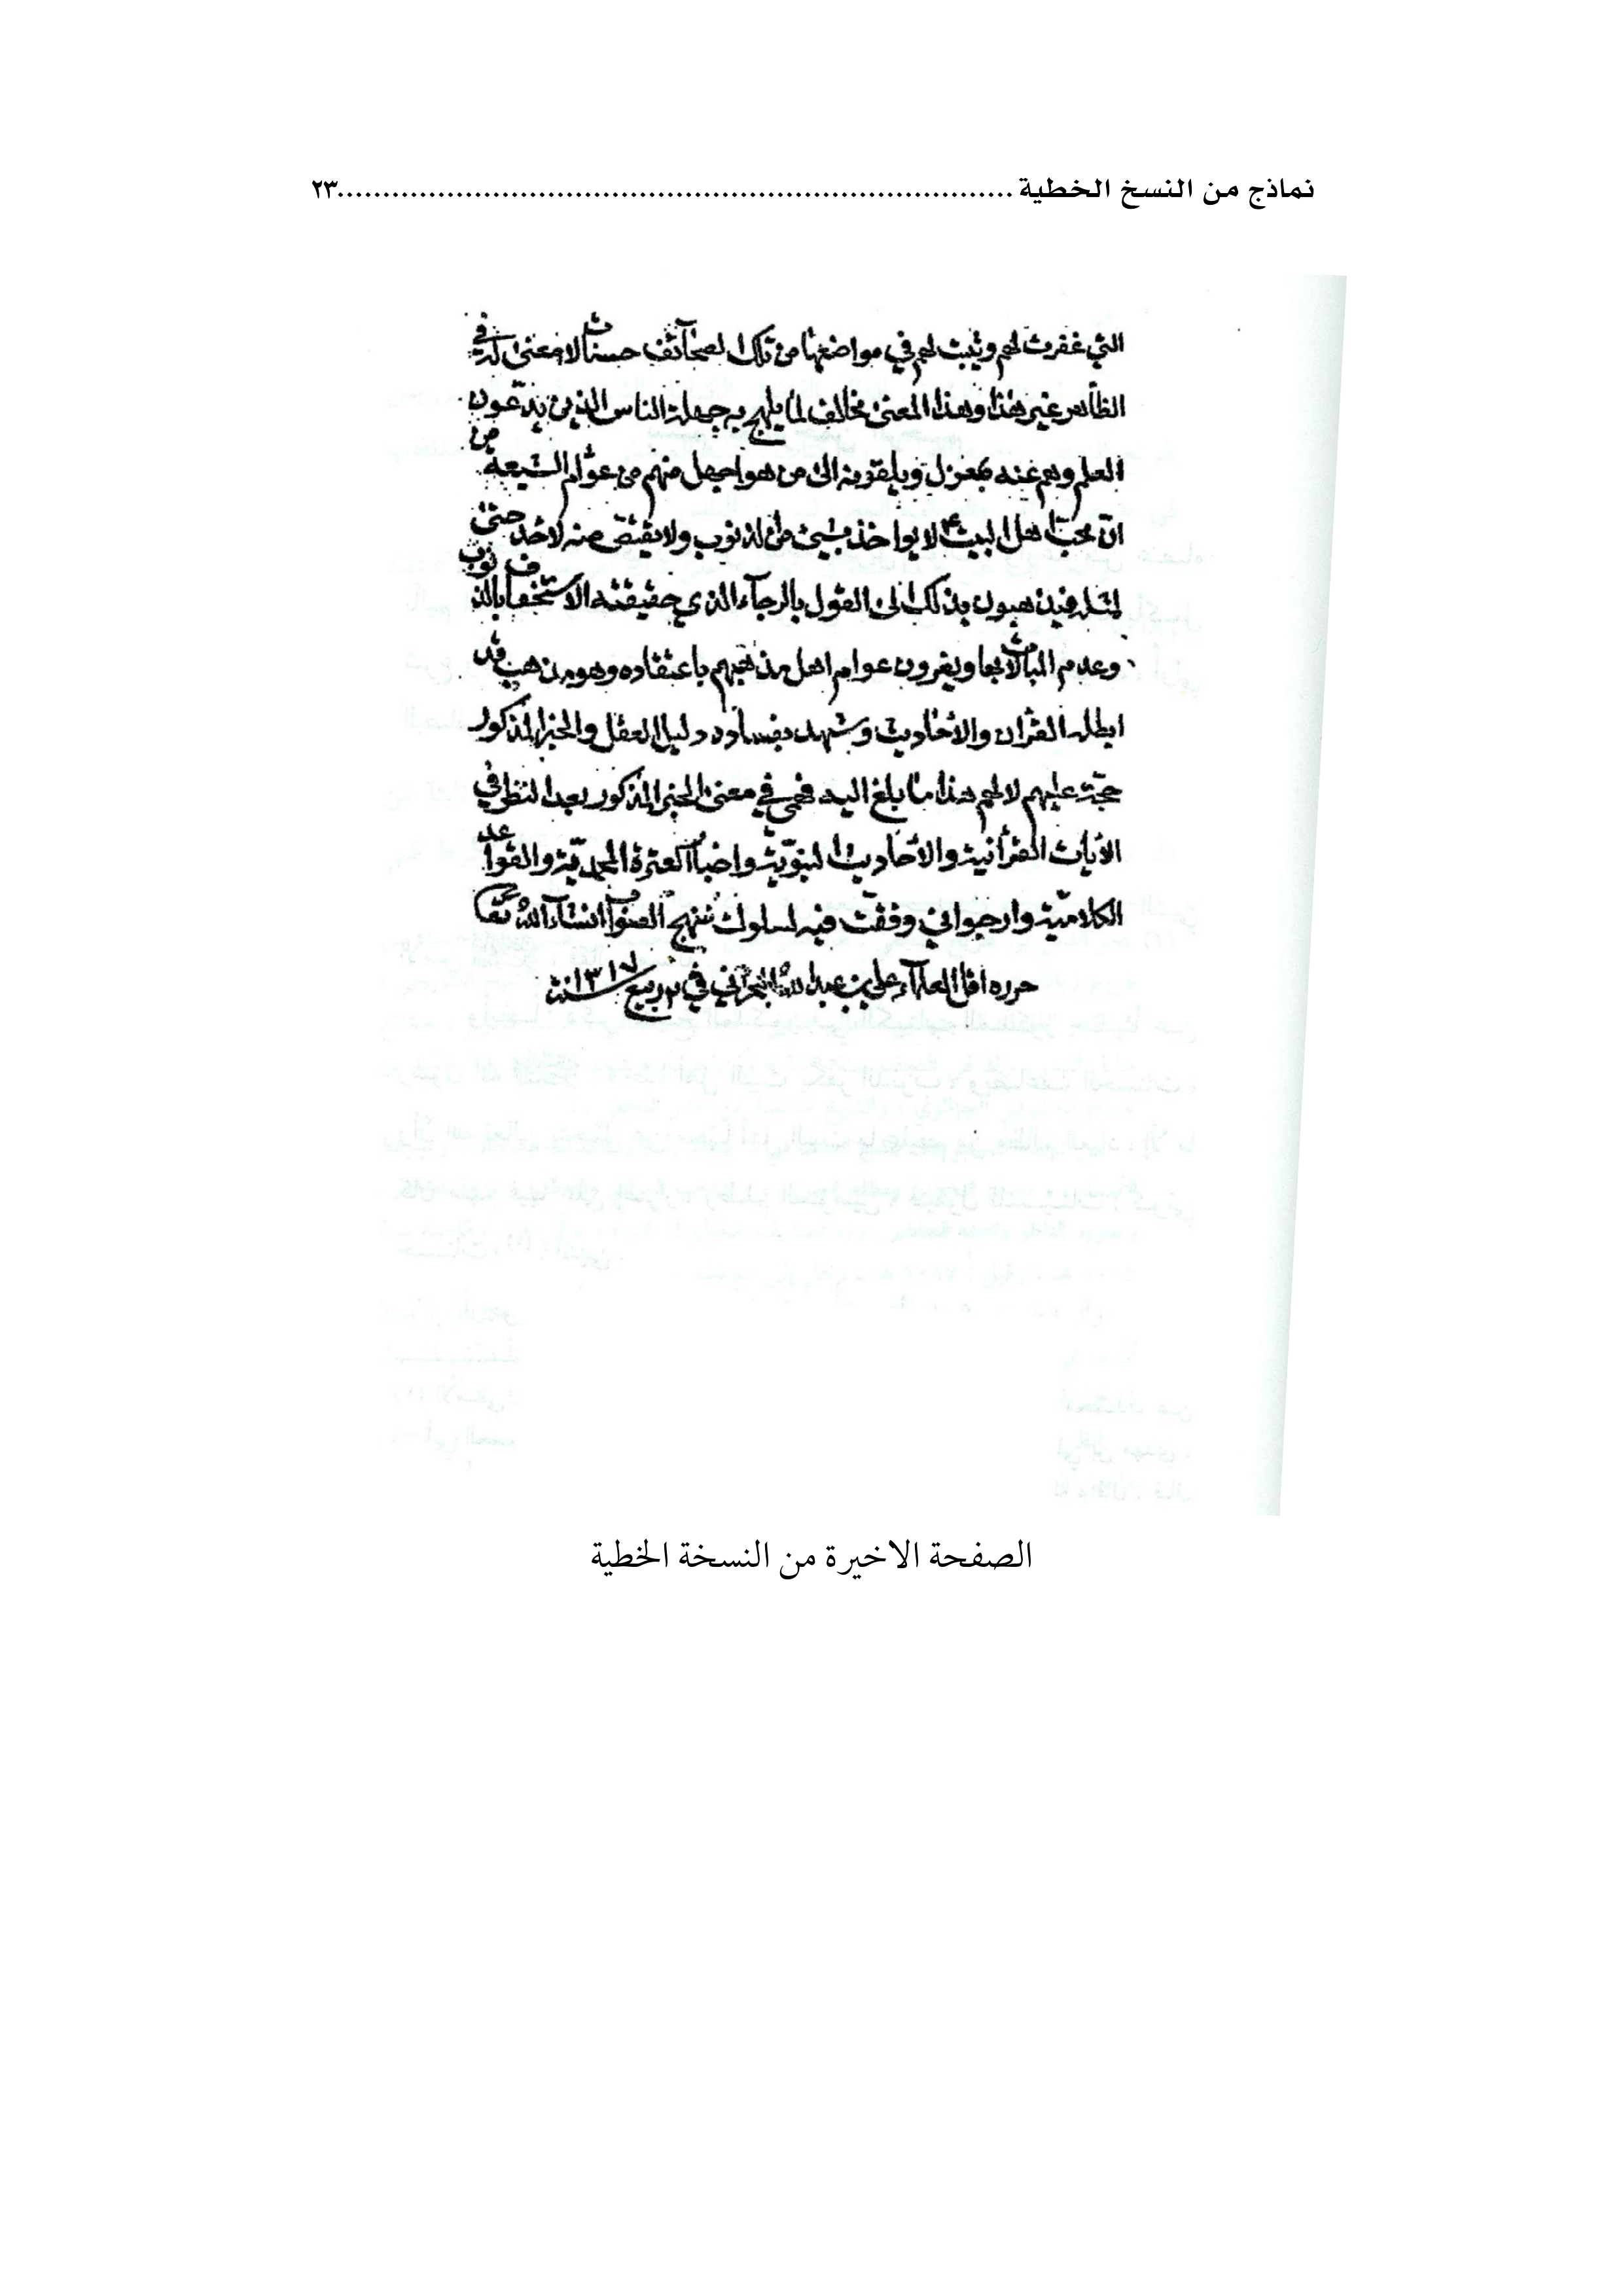 نماذج من النسخ الخطية ......................................................................٢٣
التي غفرت لهم ويثبت لهم في مواضعها من تلك الصحائف حسنات لا معنى له في
الظاهر غير هذا وهذا المعنى مخالف لما يلهج به جهلة الناس الذين يدّعون
العلم وهم عنه بمعزل ويلقونه الى من هو اجهل منهم من عوام الشيعة من
انّ محب اهل البيت ع لا يواخذ بشيئ من الذنوب ولا يقتصّ منه لاحد حتى
فيذهبون بذلك الى القول بالرجآء الذي حقيقته الاستخفاف بالذنوب
وعدم المبالات بها ويغرون عوام اهل مذهبهم باعتقاده وهو مذهب قد
ابطله القرآن والاحاديث وشهد بفساده دليل العقل والخبر المذكور
حجّة عليهم لا لهم هذا ما بلغ اليه فهمي في معنى الخبر المذكور بعد النظر في
الآيات القرآنية والاحاديث النبويّة واخبار العترة المحمديّة والقواعد
الكلاميّة وارجو اني وفقت فيه لسلوك منهج الصواب انشآء الله تعالى
حرره اقل العلمآء علي بن عبد الله البحراني في ربيع سنة ١٣١٧
الصفحة الاخيرة من النسخة الخطية